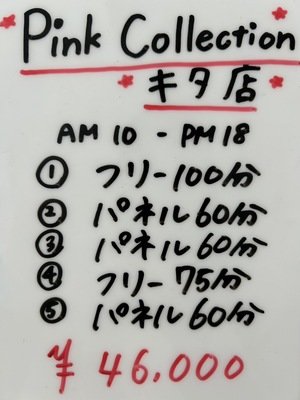 Pink Collection
キタ店
AM 10 - PM 18
① フリー100分
② パネル60分
③ パネル60分
④ フリー 75分
⑤ パネル60分
¥ 46.000